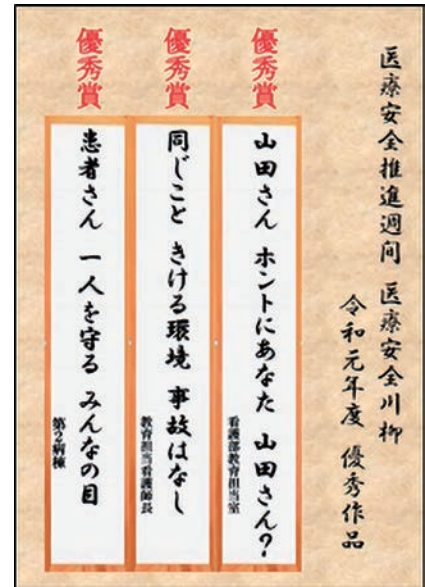 医療安全推進週間 医療安全川柳
令和元年度 優秀作品
優秀賞
山田さん ホントにあなた 山田さん?
看護部教育担当室
優秀賞
同じこと きける環境 事故はなし
教育担当看護師長
優秀賞
患者さん 一人を守る みんなの目
第2病棟